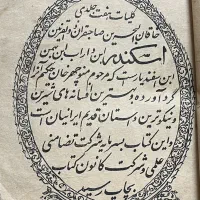 کلیات هفت جلدی
خاقان البحرین صاحبقران و القرنین
اسکندر ابن داراب ابن بهمن
ابن اسفندیار است که مرحوم منوچهر خان حکیم
گردآورده و بهترین افسانه های شیرین
و نیکوترین داستان قدیم ایرانیان است
و این کتاب بسرمایه شرکت تضامنی
علمی و شرکت کانون کتاب
بچاپ رسید